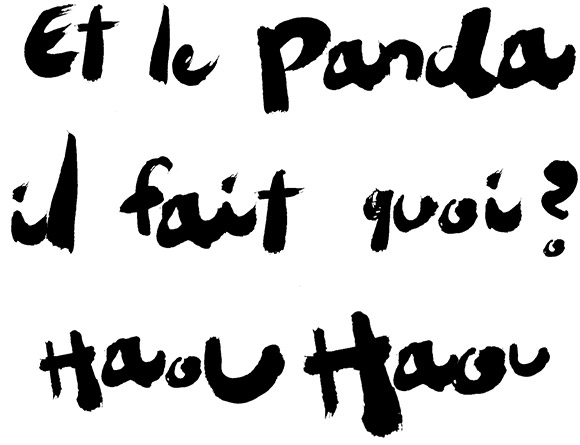 Et le Panda
il fait quoi?
Haou Haou